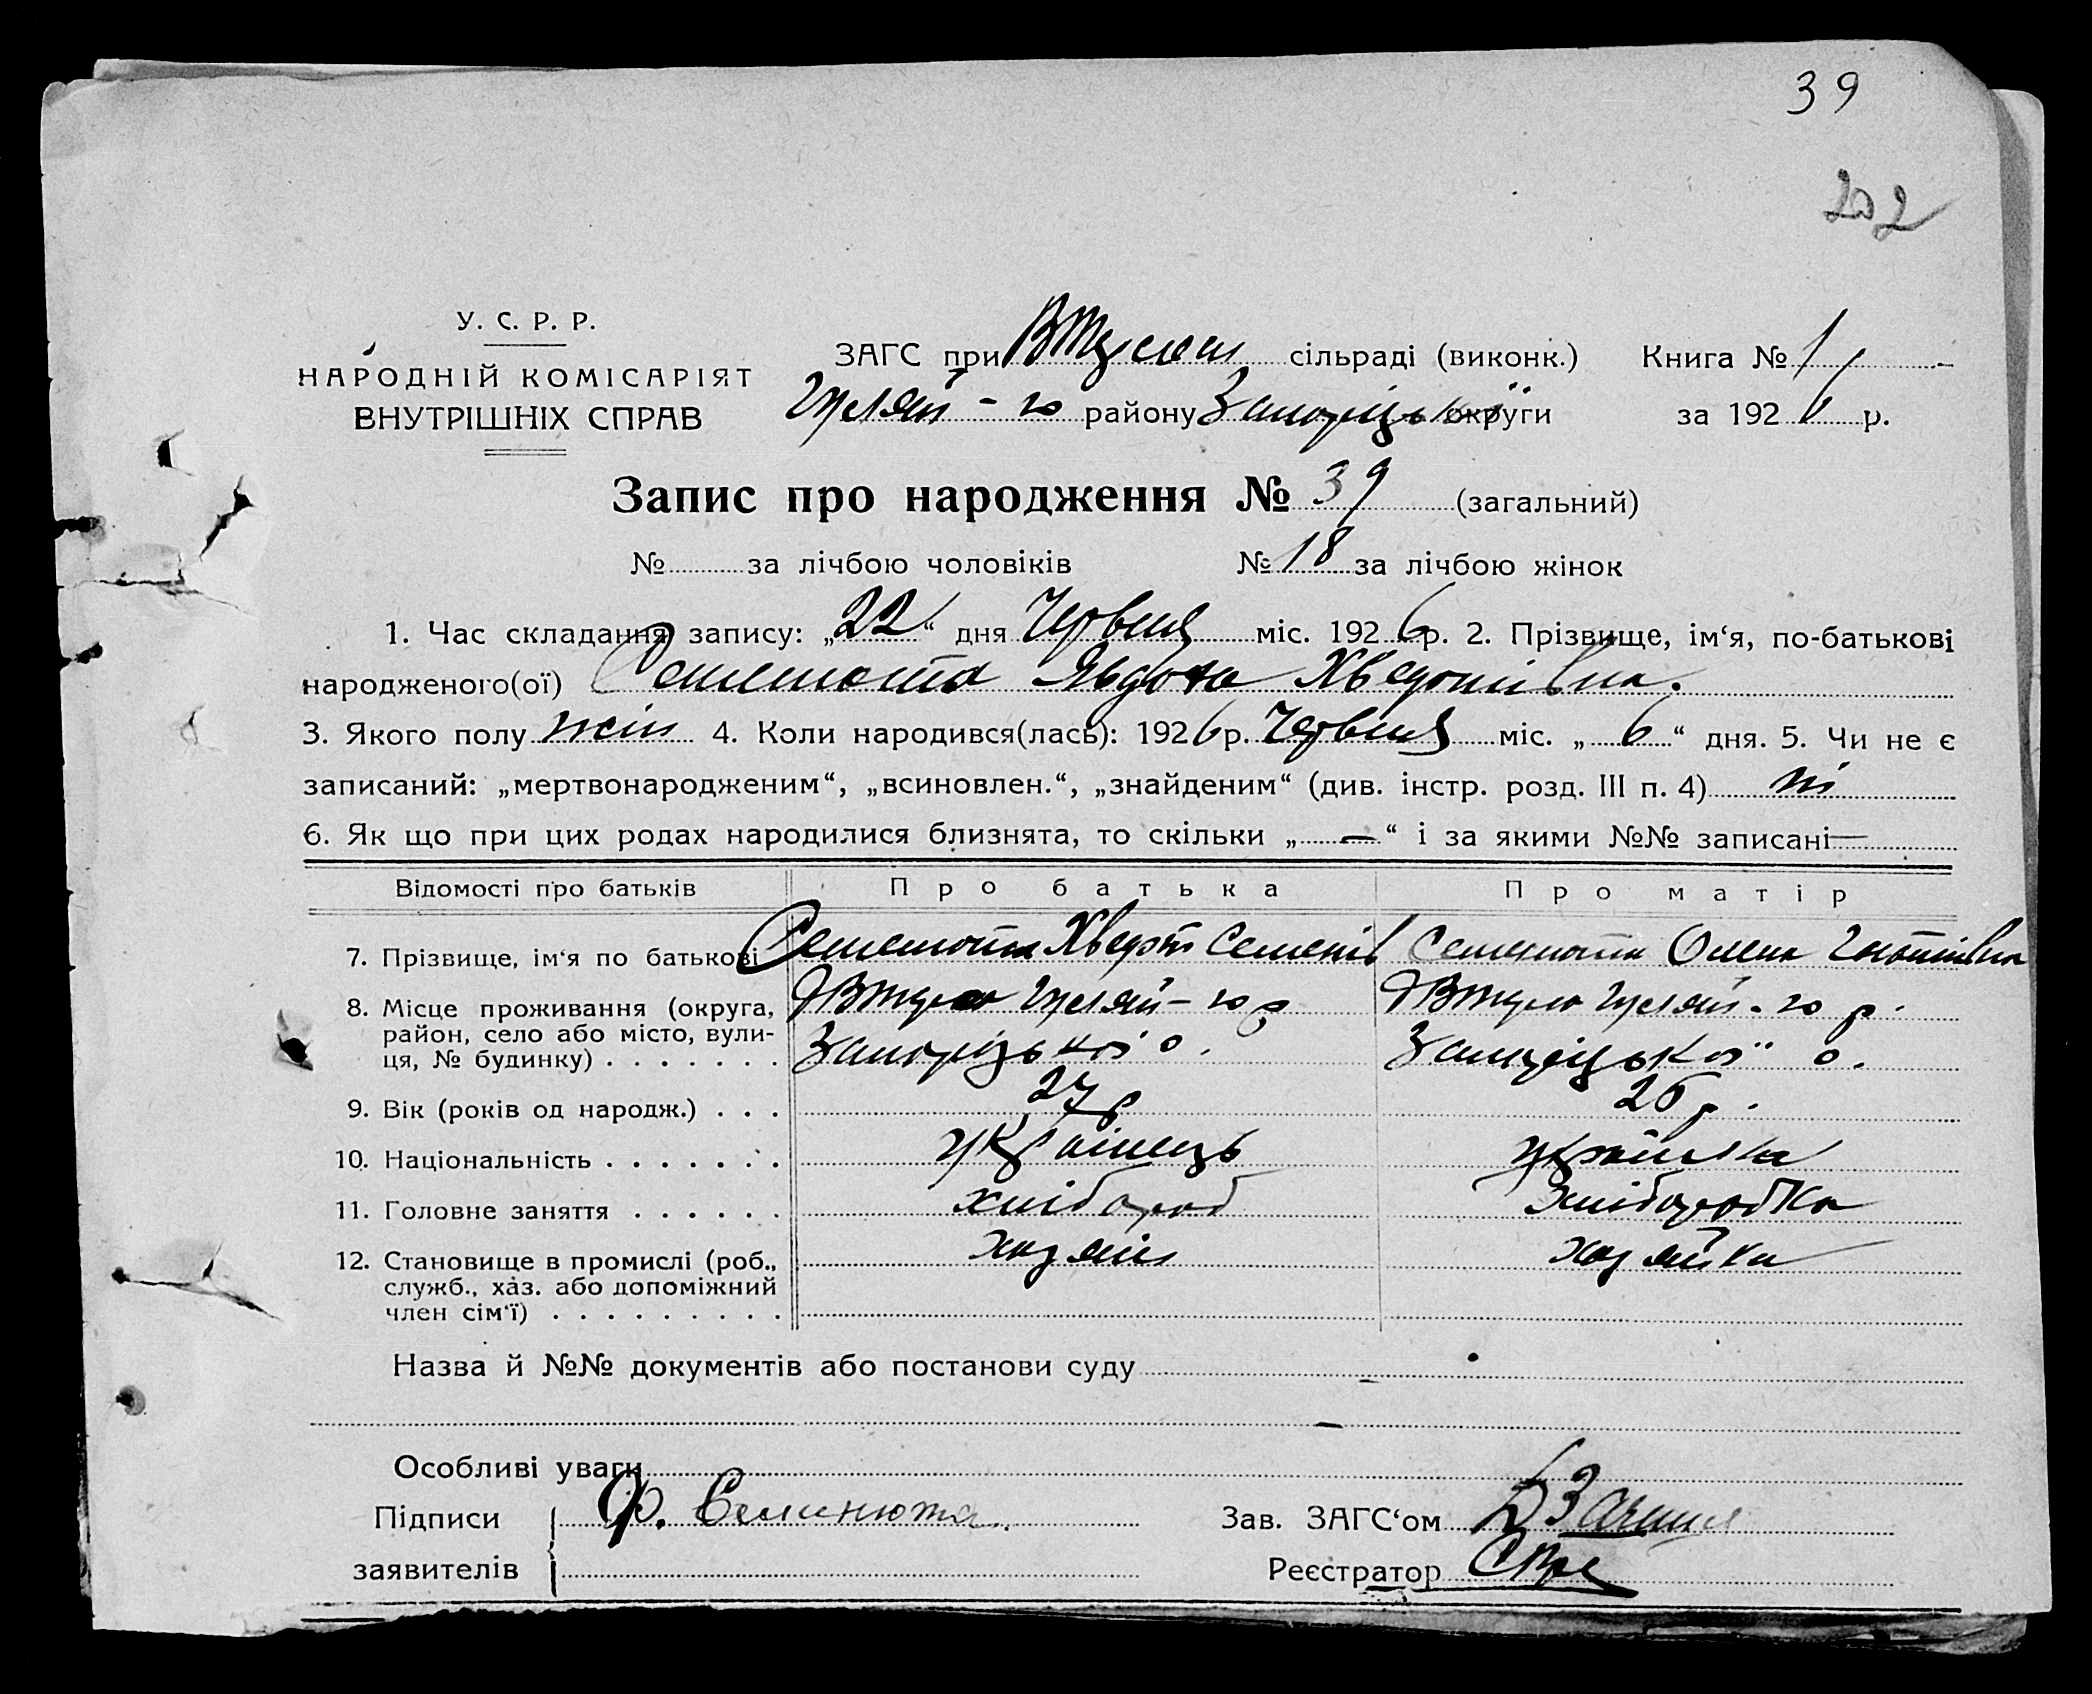 39
202
У. С. Р. Р.
НАРОДНІЙ КОМІСАРІЯТ
ВНУТРІШНІХ СПРАВ
ЗАГС при сільраді (виконк.) Книга № 1
Гуляй-го району Запорізької округи за 1926 р.
Запис про народження № 39 (загальний)
№ за лічбою чоловіків № 18 за лічбою жінок
1. Час складання запису: „22“ дня Червня міс. 1926 р. 2. Прізвище, ім‘я, по-батькові
народженого(ої) Семенюта Явдоха Хведотівна.
3. Якого полу жін 4. Коли народився(лась): 1926 р. Червня міс. „6“ дня. 5. Чи не є
записаний: „мертвонародженим“, „всиновлен.“, „знайденим“ (див. інстр. розд. III п. 4) ні
6. Як що при цих родах народилися близнята, то скільки „—“ і за якими №№ записані —
Відомості про батьків Про батька Про матір
7. Прізвище, ім‘я по батькові Семенюта Хведот Семенів Семенюта Олена Гнатівна
8. Місце проживання (округа, район, село або місто, вулиця, № будинку) . . . . . . .
Гуляй-го р Запорізької о. Гуляй-го р. Запорізької о.
9. Вік (років од народж.) . . . 27 р 26 р.
10. Національність . . . . . . . українець українка
11. Головне заняття . . . . . . хлібороб хліборобка
12. Становище в промислі (роб., служб., хаз. або допоміжний член сім‘ї) . . . . . . . . . хазяїн хазяйка
Назва й №№ документів або постанови суду —
—
Особливі уваги
Підписи заявителів Ф. Семинюта.
Зав. ЗАГС‘ом
Реєстратор